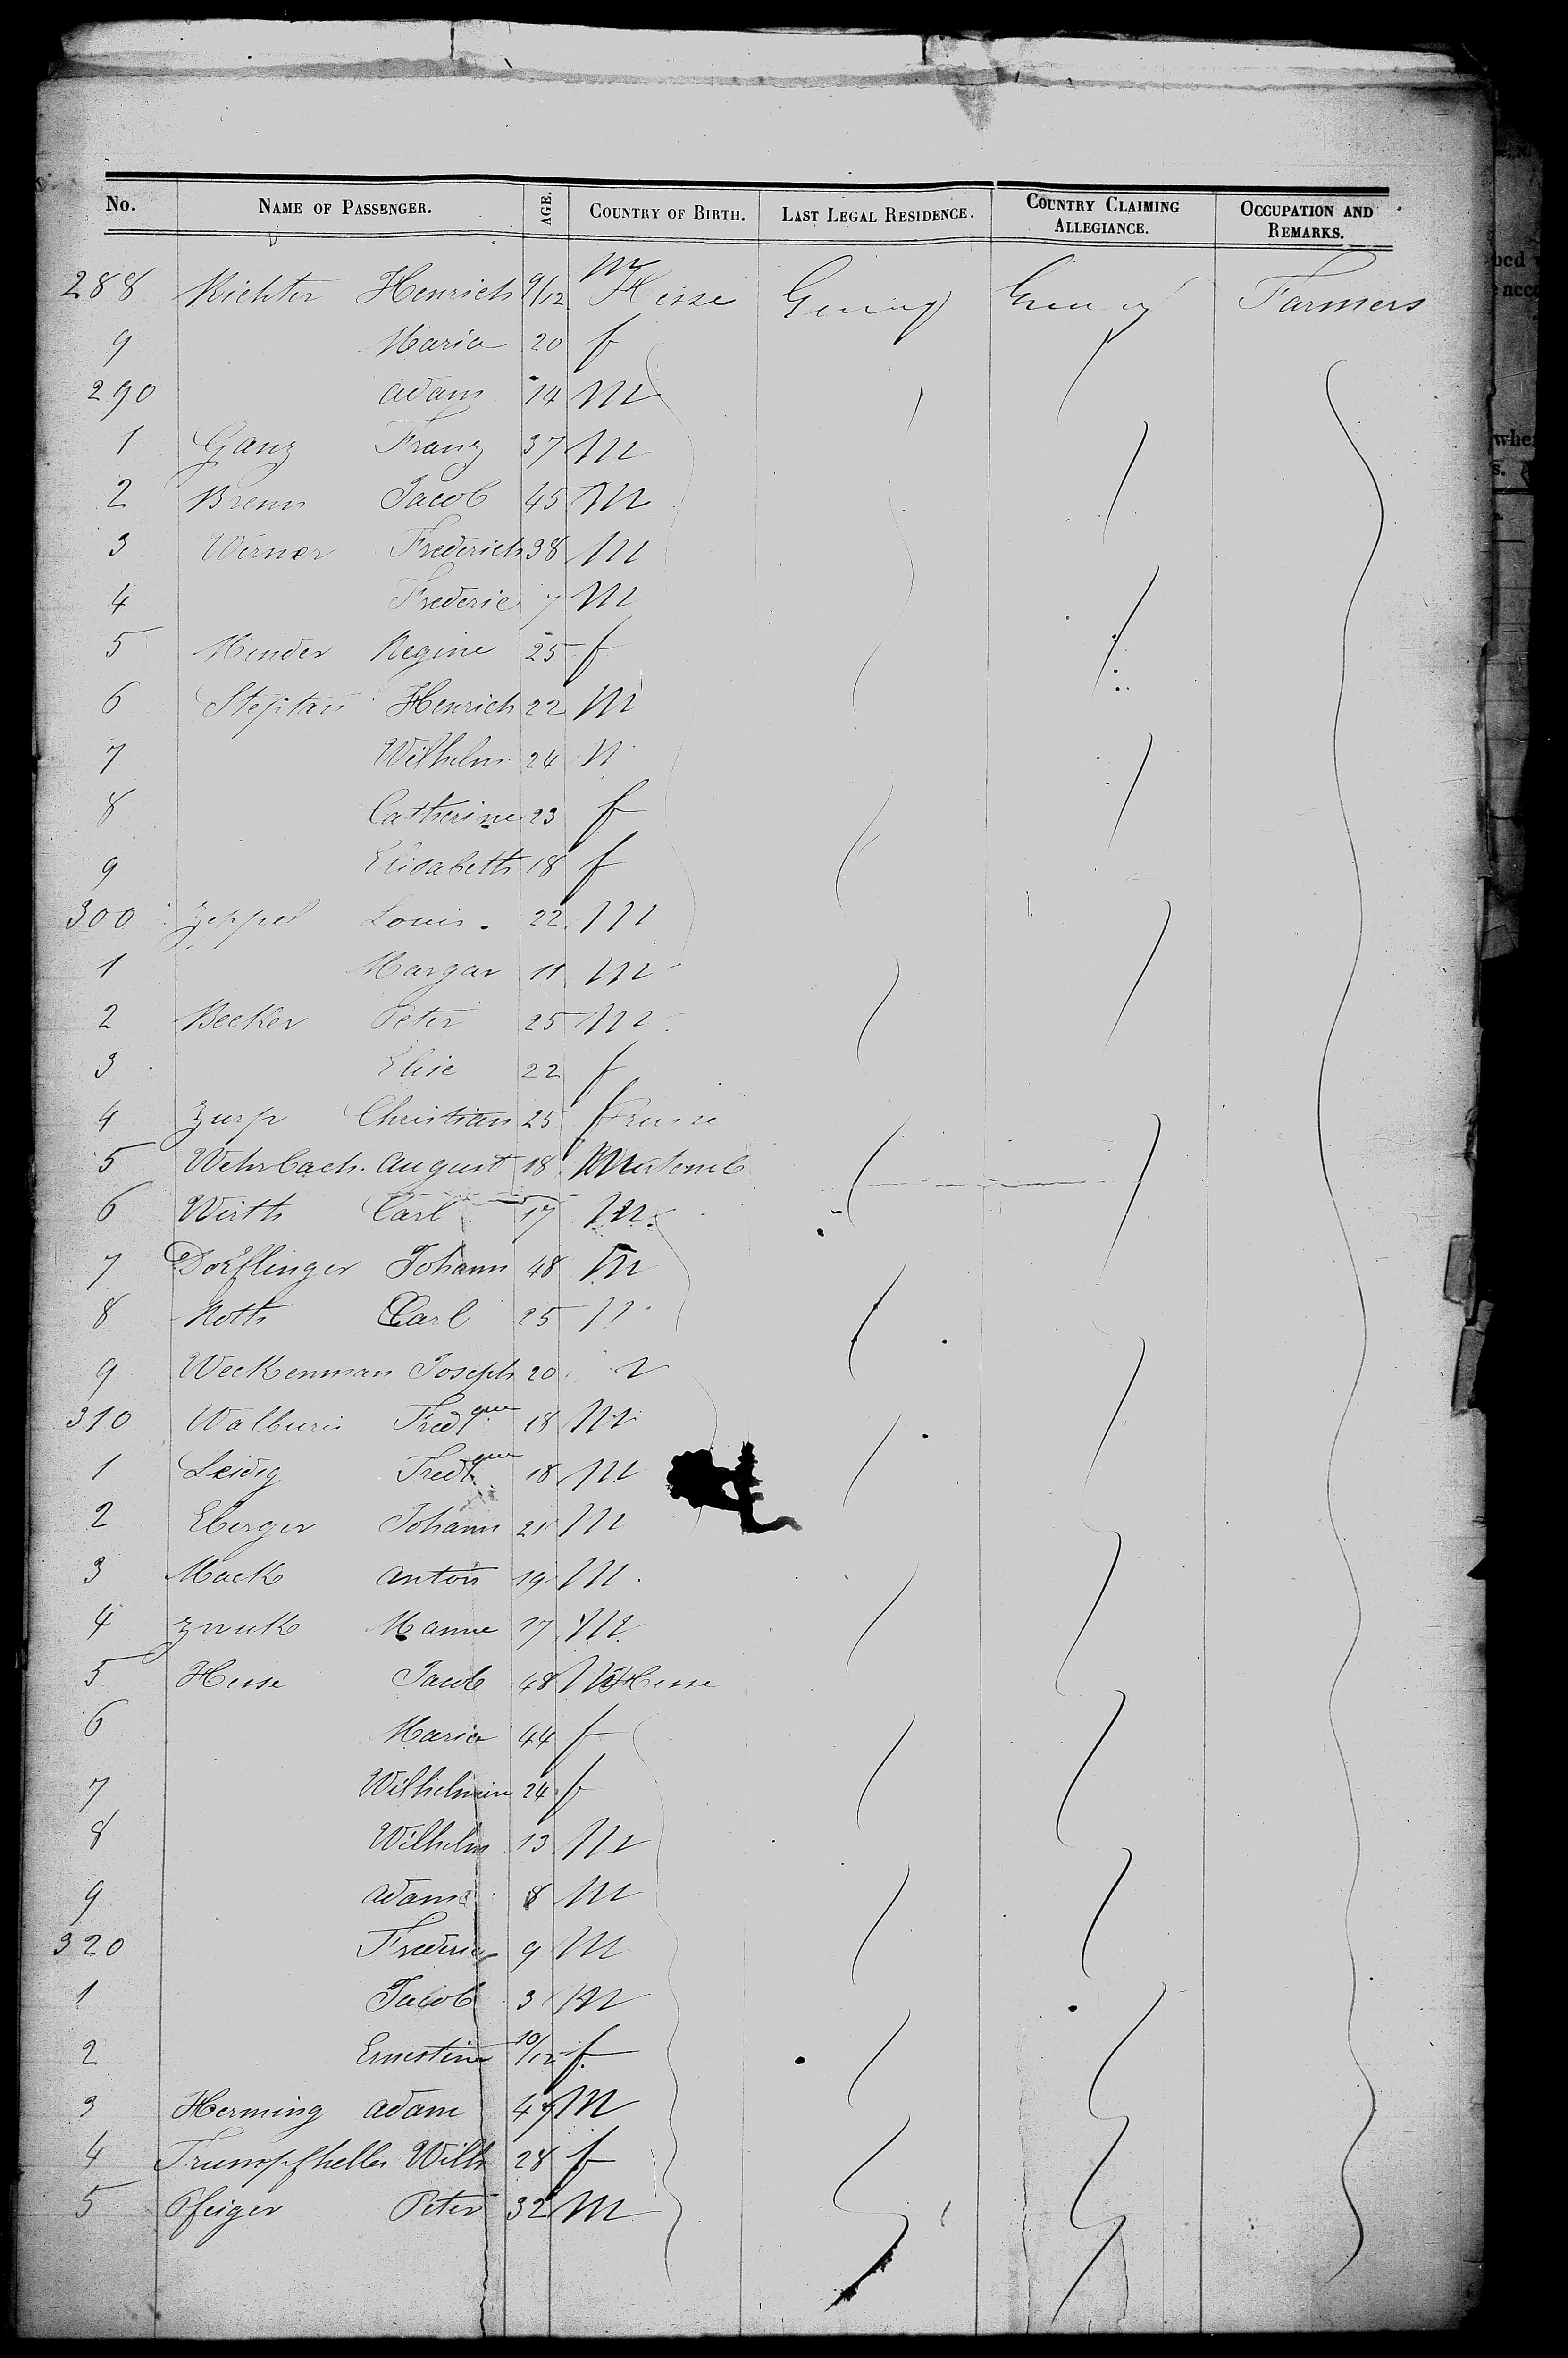 No. NAME OF PASSENGER. AGE. COUNTRY OF BIRTH. LAST LEGAL RESIDENCE. COUNTRY CLAIMING ALLEGIANCE. OCCUPATION AND REMARKS.
288 Richter Henrich 9/12 m Hesse Germy Germany Farmers
9 Maria 20 f
290 Adam 14 m
1 Ganz Franz 37 m
2 Brenn Jacob 45 m
3 Werner Frederich 38 m
4 Frederic 7 m
5 Minder Regine 25 f
6 Steptan Henrich 22 m
7 Wilhelm 24
8 Catherine 23 f
9 Elisabeth 18 f
300 Zeppel Louis. 22 m
1 Margar 11 m
2 Becker Peter 25 m
3 Elise 22 f
4 Zurp Christian 25 f Prusse
5 Wehrbach August 18 m
6 Wirth Carl 17 m
7 Dorflinger Johann 48 m
8 Roth Carl 25
9 Weckenman Joseph 20
310 Walburis Fredque 18 m
1 Leidig Fredque 18 m
2 Eberger Johann 21 m
3 Mack Anton 19 m
4 Znuk Manne 17 m
5 Hesse Jacob 48 m Hesse
6 Maria 44 f
7 Wilhelmine 24 f
8 Wilhelm 13 m
9 Adam 8 m
320 Frederic 9 m
1 Jacob 3 m
2 Ernestine 10/12 f
3 Herming Adam 47 m
4 Trumpfheller Wilh 28 f
5 Pfeiger Peter 32 m